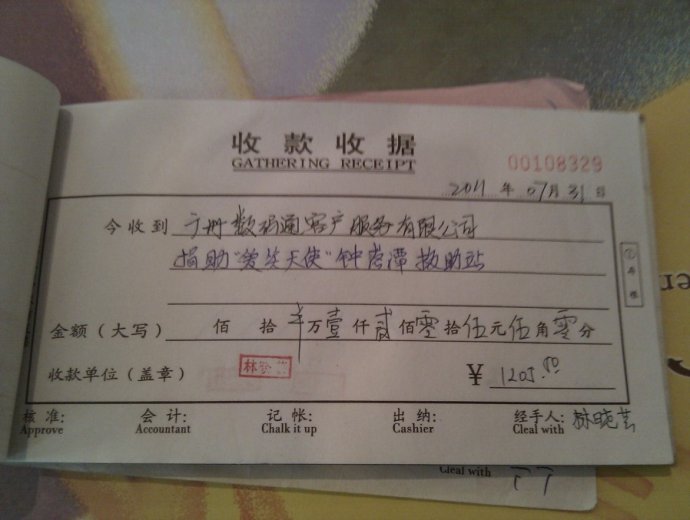 收款收据
GATHERING RECEIPT
00108329
2011年07月31日
今收到 数码通客户服务有限公司
捐助"天使"钟落潭救助站
金额(大写) 佰 拾 万壹仟贰佰零拾伍元伍角零分
收款单位(盖章) 林 ¥ 1205.50
核准: 会计: 记帐: 出纳: 经手人: 林晓芸
Approve Accountant Chalk it up Cashier Cleal with
①存根
Cleal with